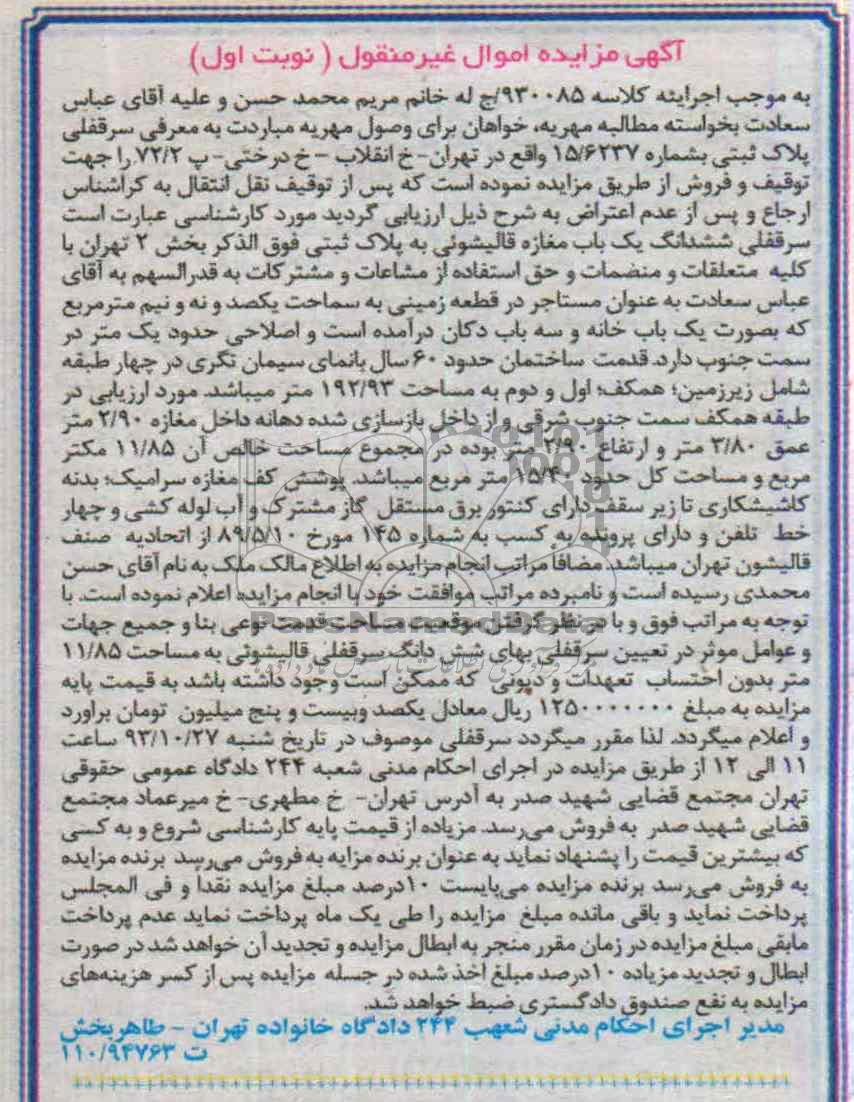 آگهی مزایده اموال غیرمنقول ( نوبت اول)
به موجب اجرائیه کلاسه ۹۳۰۰۸۵/ج له خانم مریم محمد حسن و علیه آقای عباس
سعادت بخواسته مطالبه مهریه، خواهان برای وصول مهریه مباردت به معرفی سرقفلی
پلاک ثبتی بشماره ۱۵/۶۲۳۷ واقع در تهران- خ انقلاب - خ درختی- پ ۷۲/۲ را جهت
توقیف و فروش از طریق مزایده نموده است که پس از توقیف نقل انتقال به کراشناس
ارجاع و پس از عدم اعتراض به شرح ذیل ارزیابی گردید مورد کارشناسی عبارت است
سرقفلی ششدانگ یک باب مغازه قالیشوئی به پلاک ثبتی فوق الذکر بخش ۲ تهران با
کلیه متعلقات و منضمات و حق استفاده از مشاعات و مشترکات به قدرالسهم به آقای
عباس سعادت به عنوان مستاجر در قطعه زمینی به سماحت یکصد و نه و نیم مترمربع
که بصورت یک باب خانه و سه باب دکان درآمده است و اصلاحی حدود یک متر در
سمت جنوب دارد. قدمت ساختمان حدود ۶۰ سال بانمای سیمان تگری در چهار طبقه
شامل زیرزمین؛ همکف؛ اول و دوم به مساحت ۱۹۲/۹۳ متر میباشد. مورد ارزیابی در
طبقه همکف سمت جنوب شرقی و از داخل بازسازی شده دهانه داخل مغازه ۲/۹۰ متر
عمق ۳/۸۰ متر و ارتفاع ۲/۹۰ متر بوده در مجموع مساحت خالص آن ۱۱/۸۵ مکتر
مربع و مساحت کل حدود ۱۵/۴۰ متر مربع میباشد. پوشش کف مغازه سرامیک؛ بدنه
کاشیشکاری تا زیر سقف دارای کنتور برق مستقل گاز مشترک و آب لوله کشی و چهار
خط تلفن و دارای پرونده به کسب به شماره ۱۴۵ مورخ ۸۹/۵/۱۰ از اتحادیه صنف
قالیشون تهران میباشد. مضافاً مراتب انجام مزایده به اطلاع مالک ملک به نام آقای حسن
محمدی رسیده است و نامبرده مراتب موافقت خود با انجام مزایده اعلام نموده است. با
توجه به مراتب فوق و با در نظر گرفتن موقعیت مساحت قدمت نوعی بنا و جمیع جهات
و عوامل موثر در تعیین سرقفلی بهای شش دانگ سرقفلی قالیشوئی به مساحت ۱۱/۸۵
متر بدون احتساب تعهدات و دیونی که ممکن است وجود داشته باشد به قیمت پایه
مزایده به مبلغ ۱۲۵۰۰۰۰۰۰۰ ریال معادل یکصد وبیست و پنج میلیون تومان براورد
و اعلام میگردد. لذا مقرر میگردد سرقفلی موصوف در تاریخ شنبه ۹۳/۱۰/۲۷ ساعت
۱۱ الی ۱۲ از طریق مزایده در اجرای احکام مدنی شعبه ۲۴۴ دادگاه عمومی حقوقی
تهران مجتمع قضایی شهید صدر به آدرس تهران- خ مطهری- خ میرعماد مجتمع
قضایی شهید صدر به فروش می‌رسد. مزیاده از قیمت پایه کارشناسی شروع و به کسی
که بیشترین قیمت را پشنهاد نماید به عنوان برنده مزایه به فروش می‌رسد برنده مزایده
به فروش می‌رسد برنده مزایده می‌بایست ۱۰درصد مبلغ مزایده نقدا و فی المجلس
پرداخت نماید و باقی مانده مبلغ مزایده را طی یک ماه پرداخت نماید عدم پرداخت
مابقی مبلغ مزایده در زمان مقرر منجر به ابطال مزایده و تجدید آن خواهد شد در صورت
ابطال و تجدید مزیاده ۱۰درصد مبلغ اخذ شده در جسله مزایده پس از کسر هزینه‌های
مزایده به نفع صندوق دادگستری ضبط خواهد شد.
مدیر اجرای احکام مدنی شعهب ۲۴۴ دادگاه خانواده تهران - طاهربخش
ت ۱۱۰/۹۴۷۶۳
ParsNamadData